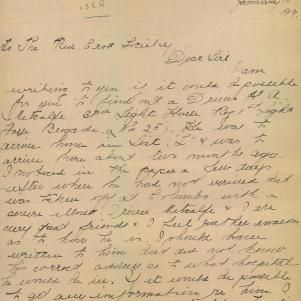 1362
January
1919
To The Red Cross Society
Dear Sirs.
I am
writing to you if it could be possible
for you to find out a Driver A. H
Metcalfe. 3rd Light Horse Reg. 1st Light
Horse Brigade. No 25 He was to
arrive home in Sept. & was to
arrive here about two months ago.
I noticed in the papers a few days
after when he had not arrived did
was taken off at Columbo with a
severe illness. Driver Metcalfe & I are
very good friends & I feel rather anxious
as to how he is I should have
written to him but did not know
his correct address as to what hospital
he would be in. If it would be possible
to get any information re him I